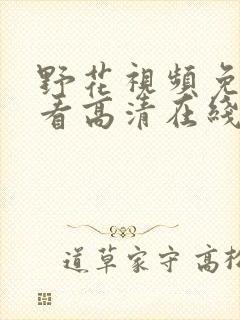 野花視頻免
看高清在綫
道草家守 高松